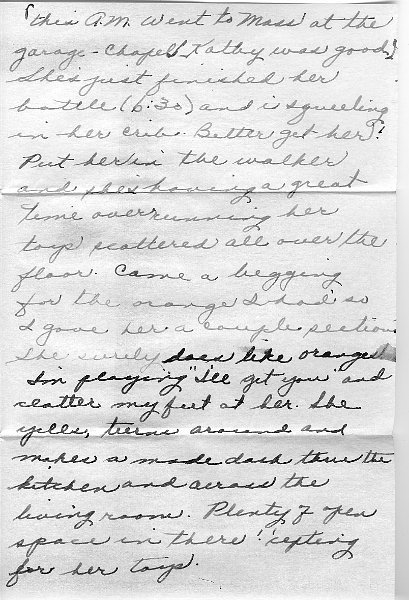 this A.M. Went to Mass at the
garage-Chapel (Kathy was good.)
She's just finished her
bottle (6:30) and is squeeling
in her crib. Better get her!
Put her in the walker
and she's having a great
time overrunning her
toys scattered all over the
floor. Came a begging
for the orange I had so
I gave her a couple sections
She surely does like oranges!
I'm playing "I'll get you" and
clatter my feet at her. She
yells, turns around and
makes a made dash thru the
kitchen and across the
living room. Plenty of open
space in there! 'cepting
for her toys.